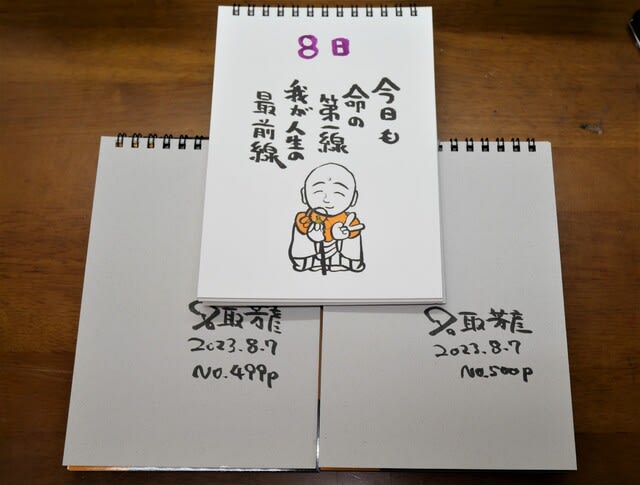 8日
今日も
命の
第一線
我が人生の
最前線
名取芳彦
2023.8.7
No.499p
名取芳彦
2023.8.7
No.500p